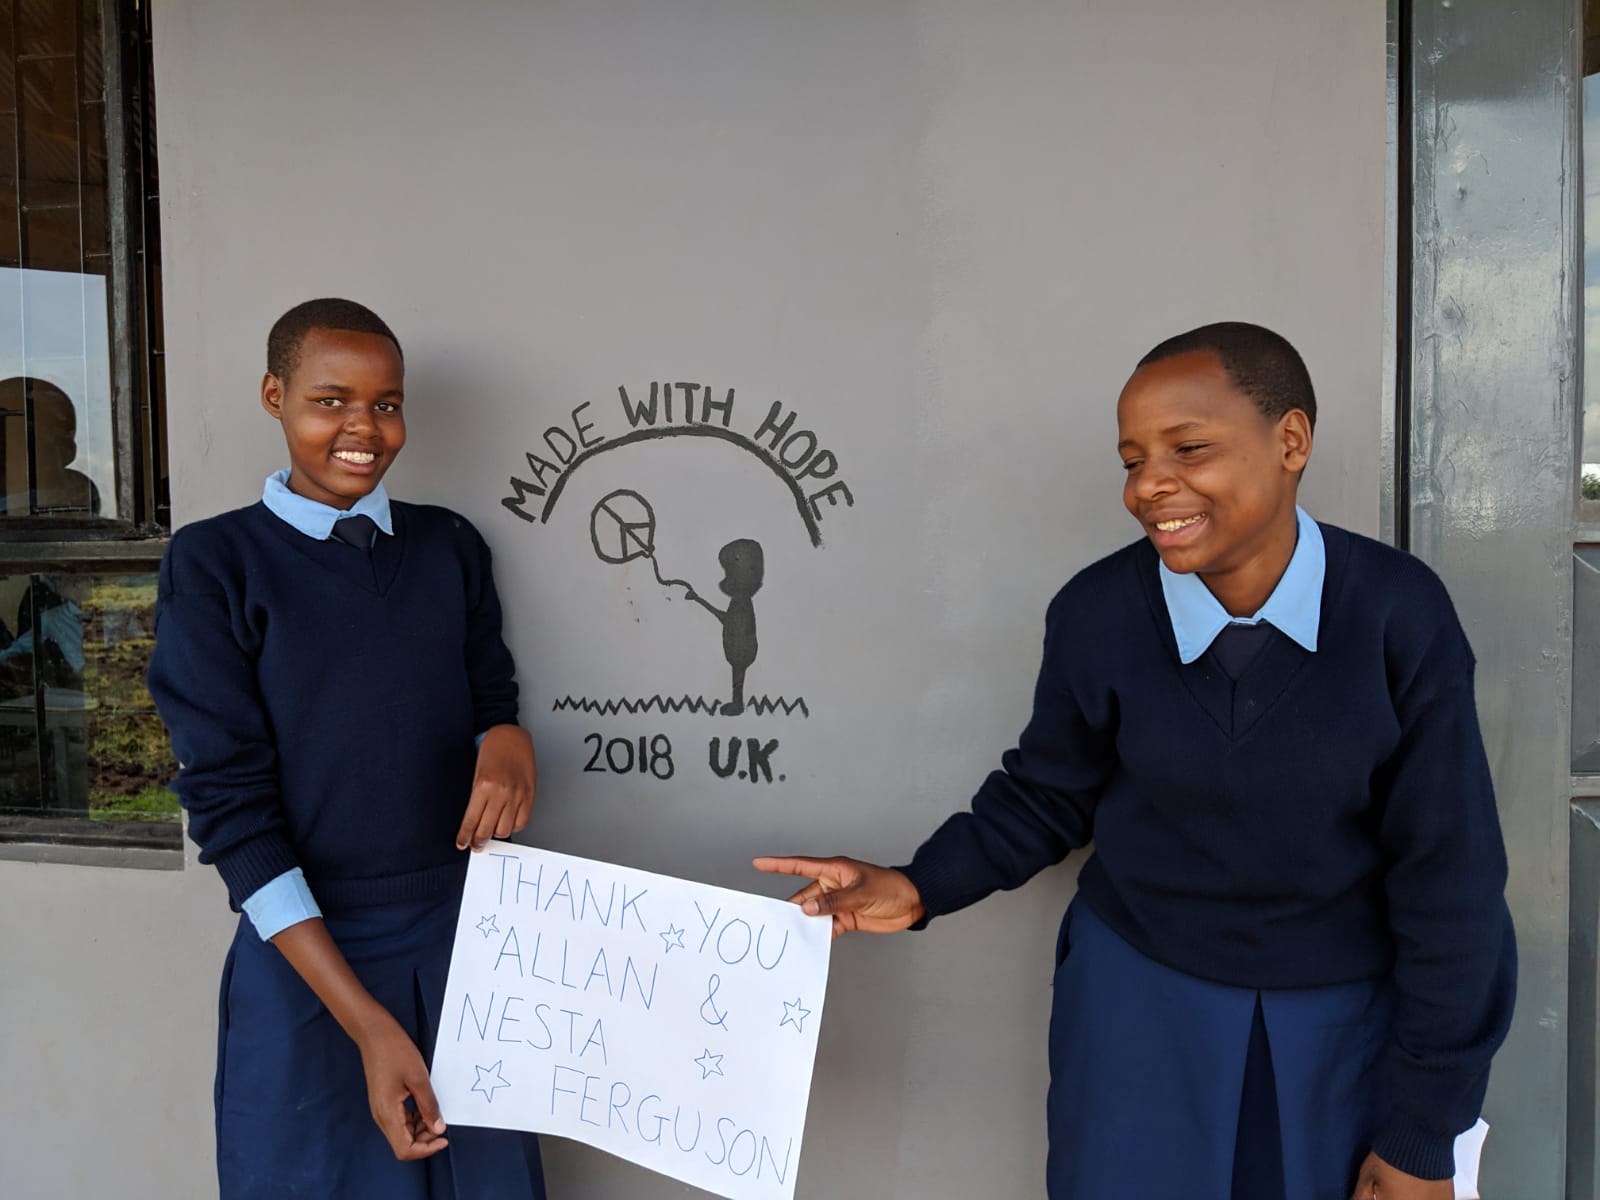 MADE WITH HOPE
2018 U.K.
THANK YOU
ALLAN &
NESTA
FERGUSON